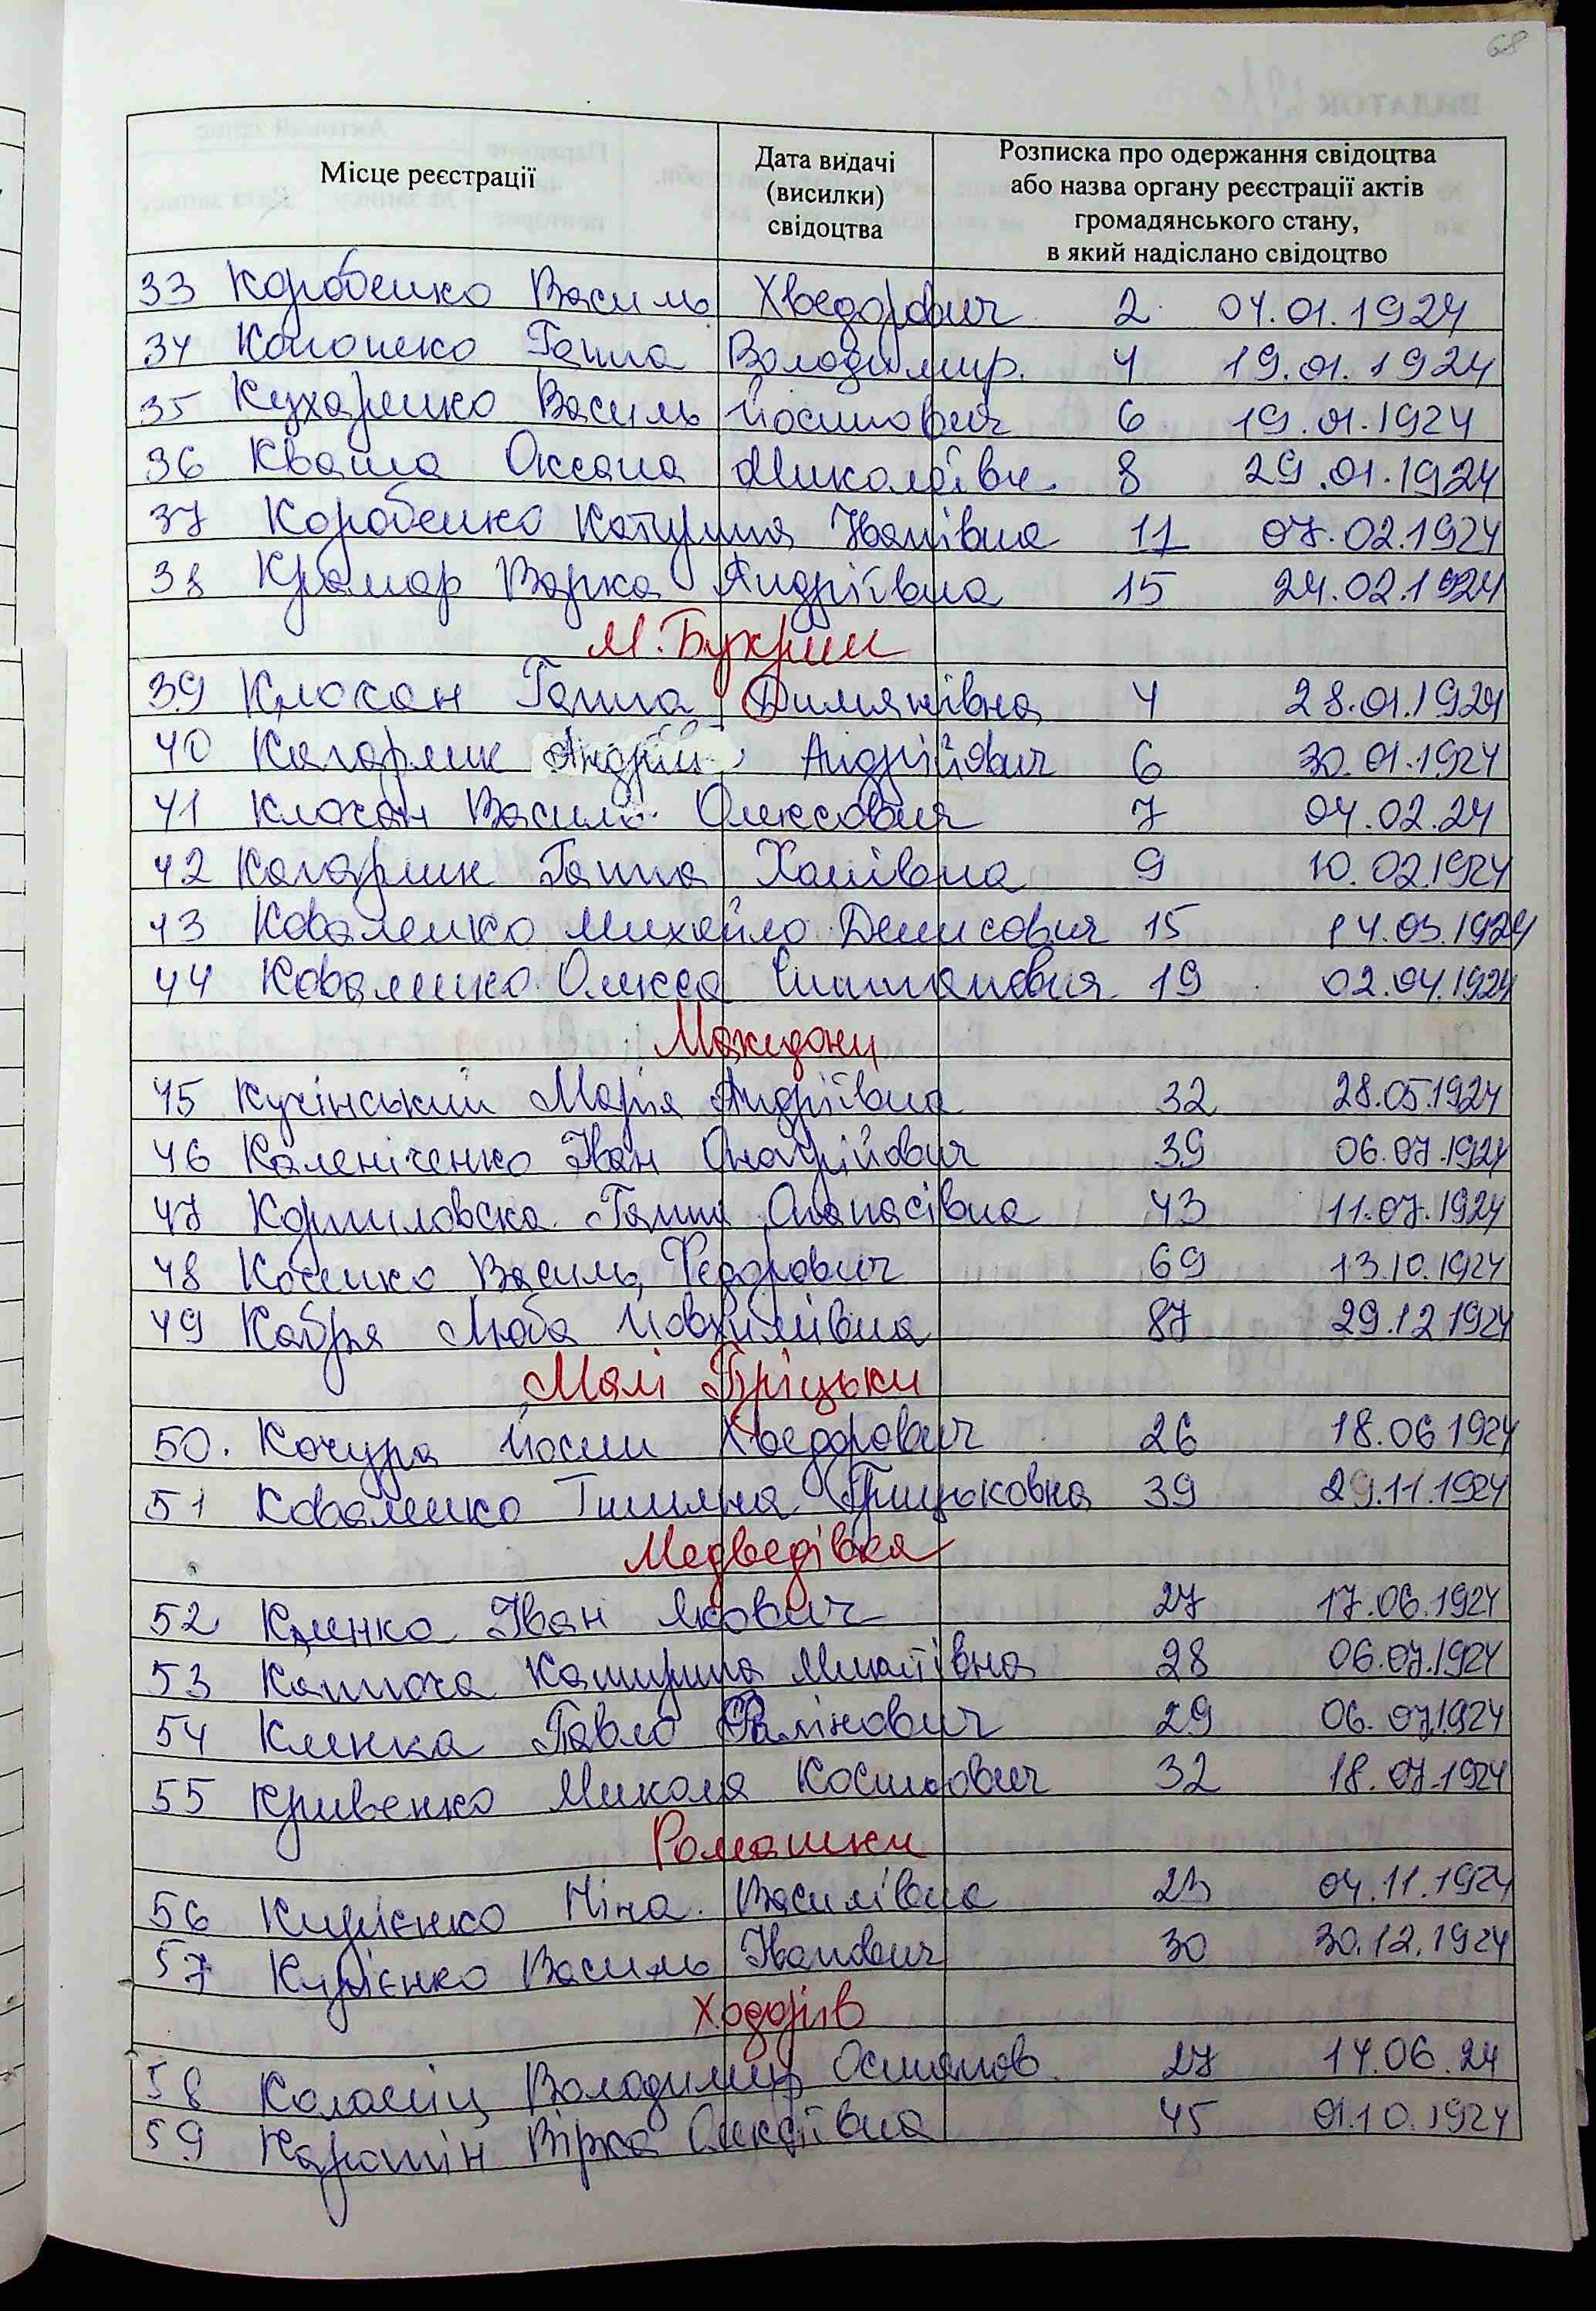 68
Місце реєстрації
Дата видачі
(висилки)
свідоцтва
Розписка про одержання свідоцтва
або назва органу реєстрації актів
громадянського стану,
в який надіслано свідоцтво
33 Коробенко Василь Хведорович 2 04.01.1924
34 Кононенко Ганна Володимир. 4 19.01.1924
35 Кухаренко Василь Йосипович 6 19.01.1924
36 Кваша Оксана Миколаївн. 8 29.01.1924
37 Коробенко Катерина Іванівна 11 07.02.1924
38 Крамар Варка Андріївна 15 24.02.1924
М. Букрин
39 Клохан Ганна Димянівна 4 28.01.1924
40 Кагарлик Андрій Андрійович 6 30.01.1924
41 Клохан Василь Олексович 7 04.02.24
42 Кагарлик Ганна 9 10.02.1924
43 Коваленко Михайло Денисович 15 14.03.1924
44 Коваленко Олекса 19 02.04.1924
Македони
45 Кучінський Марія Андріївна 32 28.05.1924
46 Каленіченко Іван Онопрійович 39 06.07.1924
47 Корниловска Ганна Опанасівна 43 11.07.1924
48 Косенко Василь Федорович 69 13.10.1924
49 Кабря Люба Йовхимівна 87 29.12.1924
Малі Пріцьки
50. Кочура Йосип Хведорович 26 18.06.1924
51 Коваленко Тетяна Грицьковна 39 29.11.1924
Медведівка
52 Кленко Іван Якович 27 17.06.1924
53 Катюха Катерина 28 06.07.1924
54 Кленка Павло 29 06.07.1924
55 Кривенко Микола Косьмович 32 18.07.1924
Ромашки
56 Кирієнко Ніна Василівна 23 04.11.1924
57 Кирієнко Василь Іванович 30 30.12.1924
Ходорів
58 Коломієц Володимир Остапов. 27 14.06.24
59 Каротін Вірка Олексіївна 45 01.10.1924